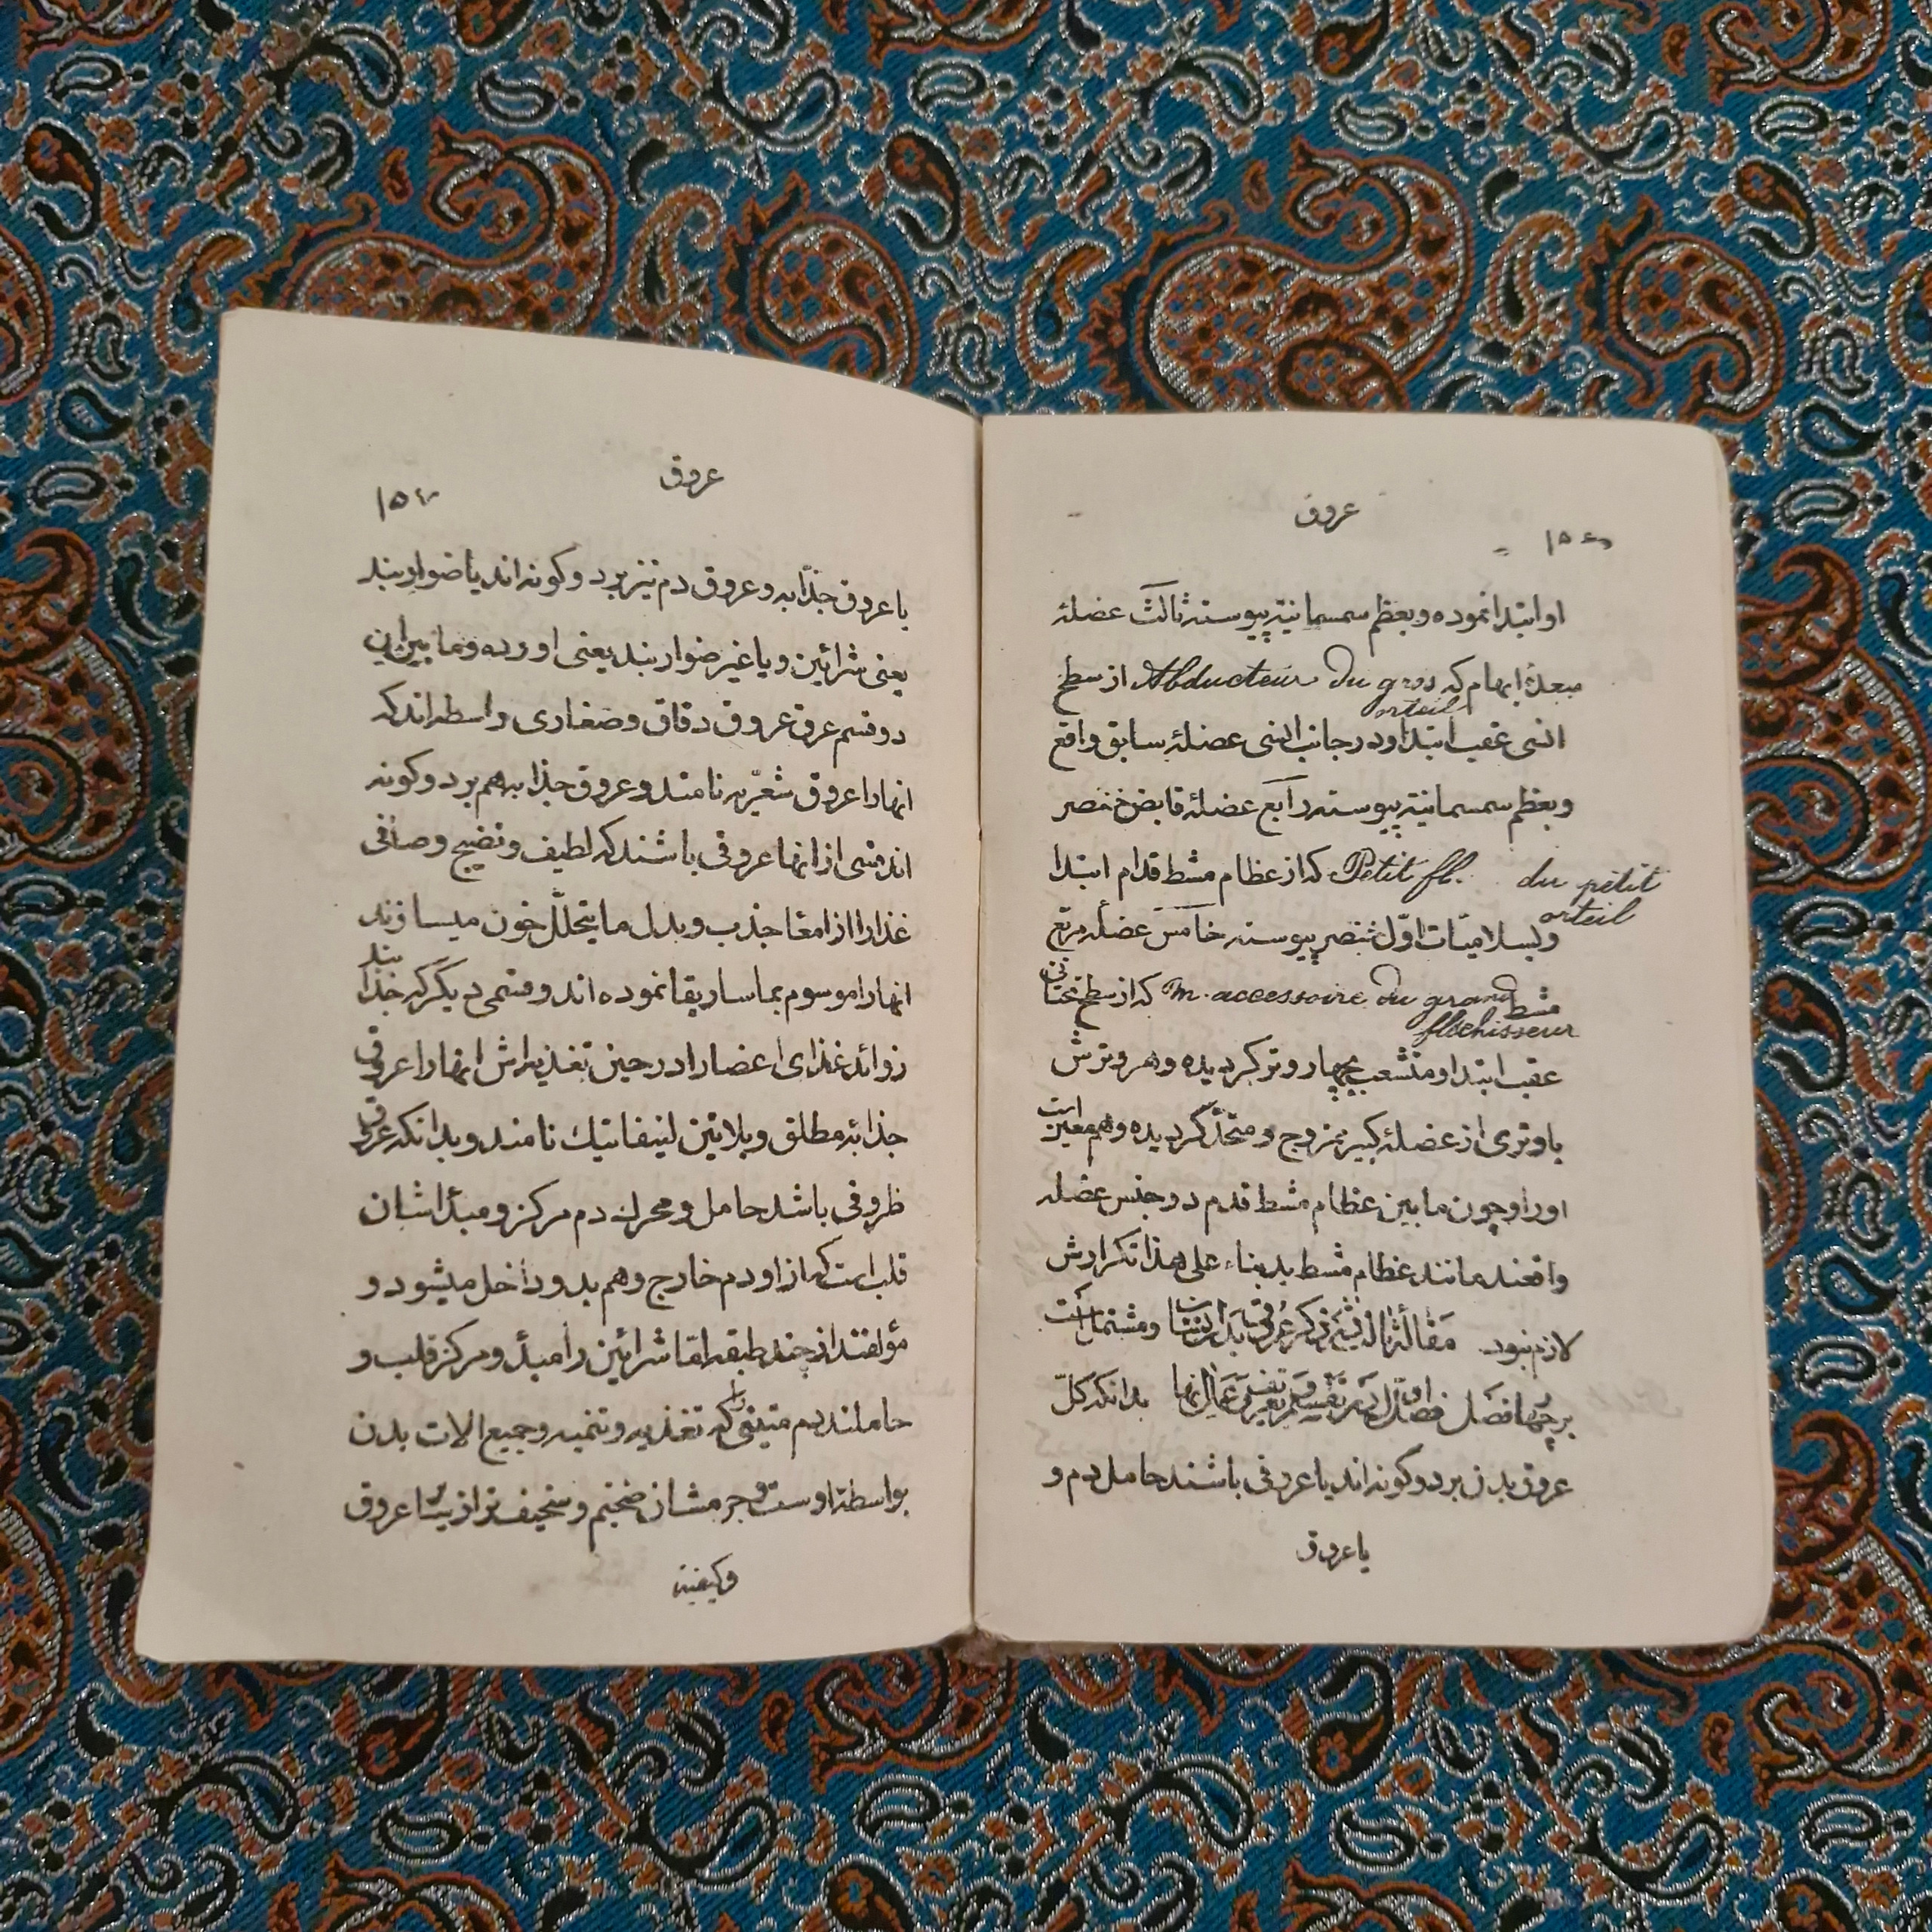 عروق
او ابتدا نموده و بعظم سمسمانیّه پیوسته ثالث عضلهٔ
مبعدهٔ ابهام که Abducteur du gros orteil از سطح
انسی عقب ابتدا و در جانب انسی عضلهٔ سابق واقع
و بعظم سمسمانیّه پیوسته رابع عضلهٔ قابض خنصر
Petit fl. du petit orteil که از عظام مشط قدام ابتدا
و بسلامیّات اوّل خنصر پیوسته خامس عضلهٔ مربّع
مشط m. accessoire du grand fléchisseur که از سطح تحتانی
عقب ابتدا و منشعب بچهار وتر گردیده و هر وترش
با وتری از عضلهٔ کبیر ممزوج و متحّد گردیده و هم معین است
او را و چون مابین عظام مشط قدم دو جنس عضله
واقعند مانند عظام مشط ید بناء علی هذا تکرارش
لازم نبود مقالهٔ ثالثه در ذکر عروق بدن انسان و مشتمل است
بر چهار فصل فصل اوّل در تقسیم و تعریف عامّ انها بدانکه کلّ
عروق بدن بر دو کونه اند یا عروقی باشند حامل دم و
یا عروق
عروق
یا عروق جذّابه و عروق دم نیز بر دو کونه اند یا ضواربند
یعنی شرائین و یا غیر ضواربند یعنی اورده و مابین این
دو قسم عرق عروق دقاق و صغاری واسطه اند که
انها را عروق شعّریه نامند و عروق جذابه هم بر دو کونه
اند قسمی از انها عروقی باشند که لطیف و نضیج و صافی
غذا را از امعا جذب و بدل ما یتحلّل خون میسازند
انها را موسوم بماساریقا نموده اند و قسمی دیگر که جذابند
زوائد غذای اعضا را در حین تغذیه اش انها را عروق
جذابهٔ مطلق و بلاتین لینفاتیك نامند و بدانکه عروق
ظروفی باشد حامل و محرك دم مرکز و مبدأ شان
قلب است که از او دم خارج و هم بدو داخل میشود و
مؤلفند از چند طبقه امّا شرائین را مبدأ و مرکز قلب و
حاملند دم متیقی را که تغذیه و تنمیه و جمیع الات بدن
بواسطهٔ اوست و جرمشان ضخیم و سخیف تر از سایر عروق
و کیفیت